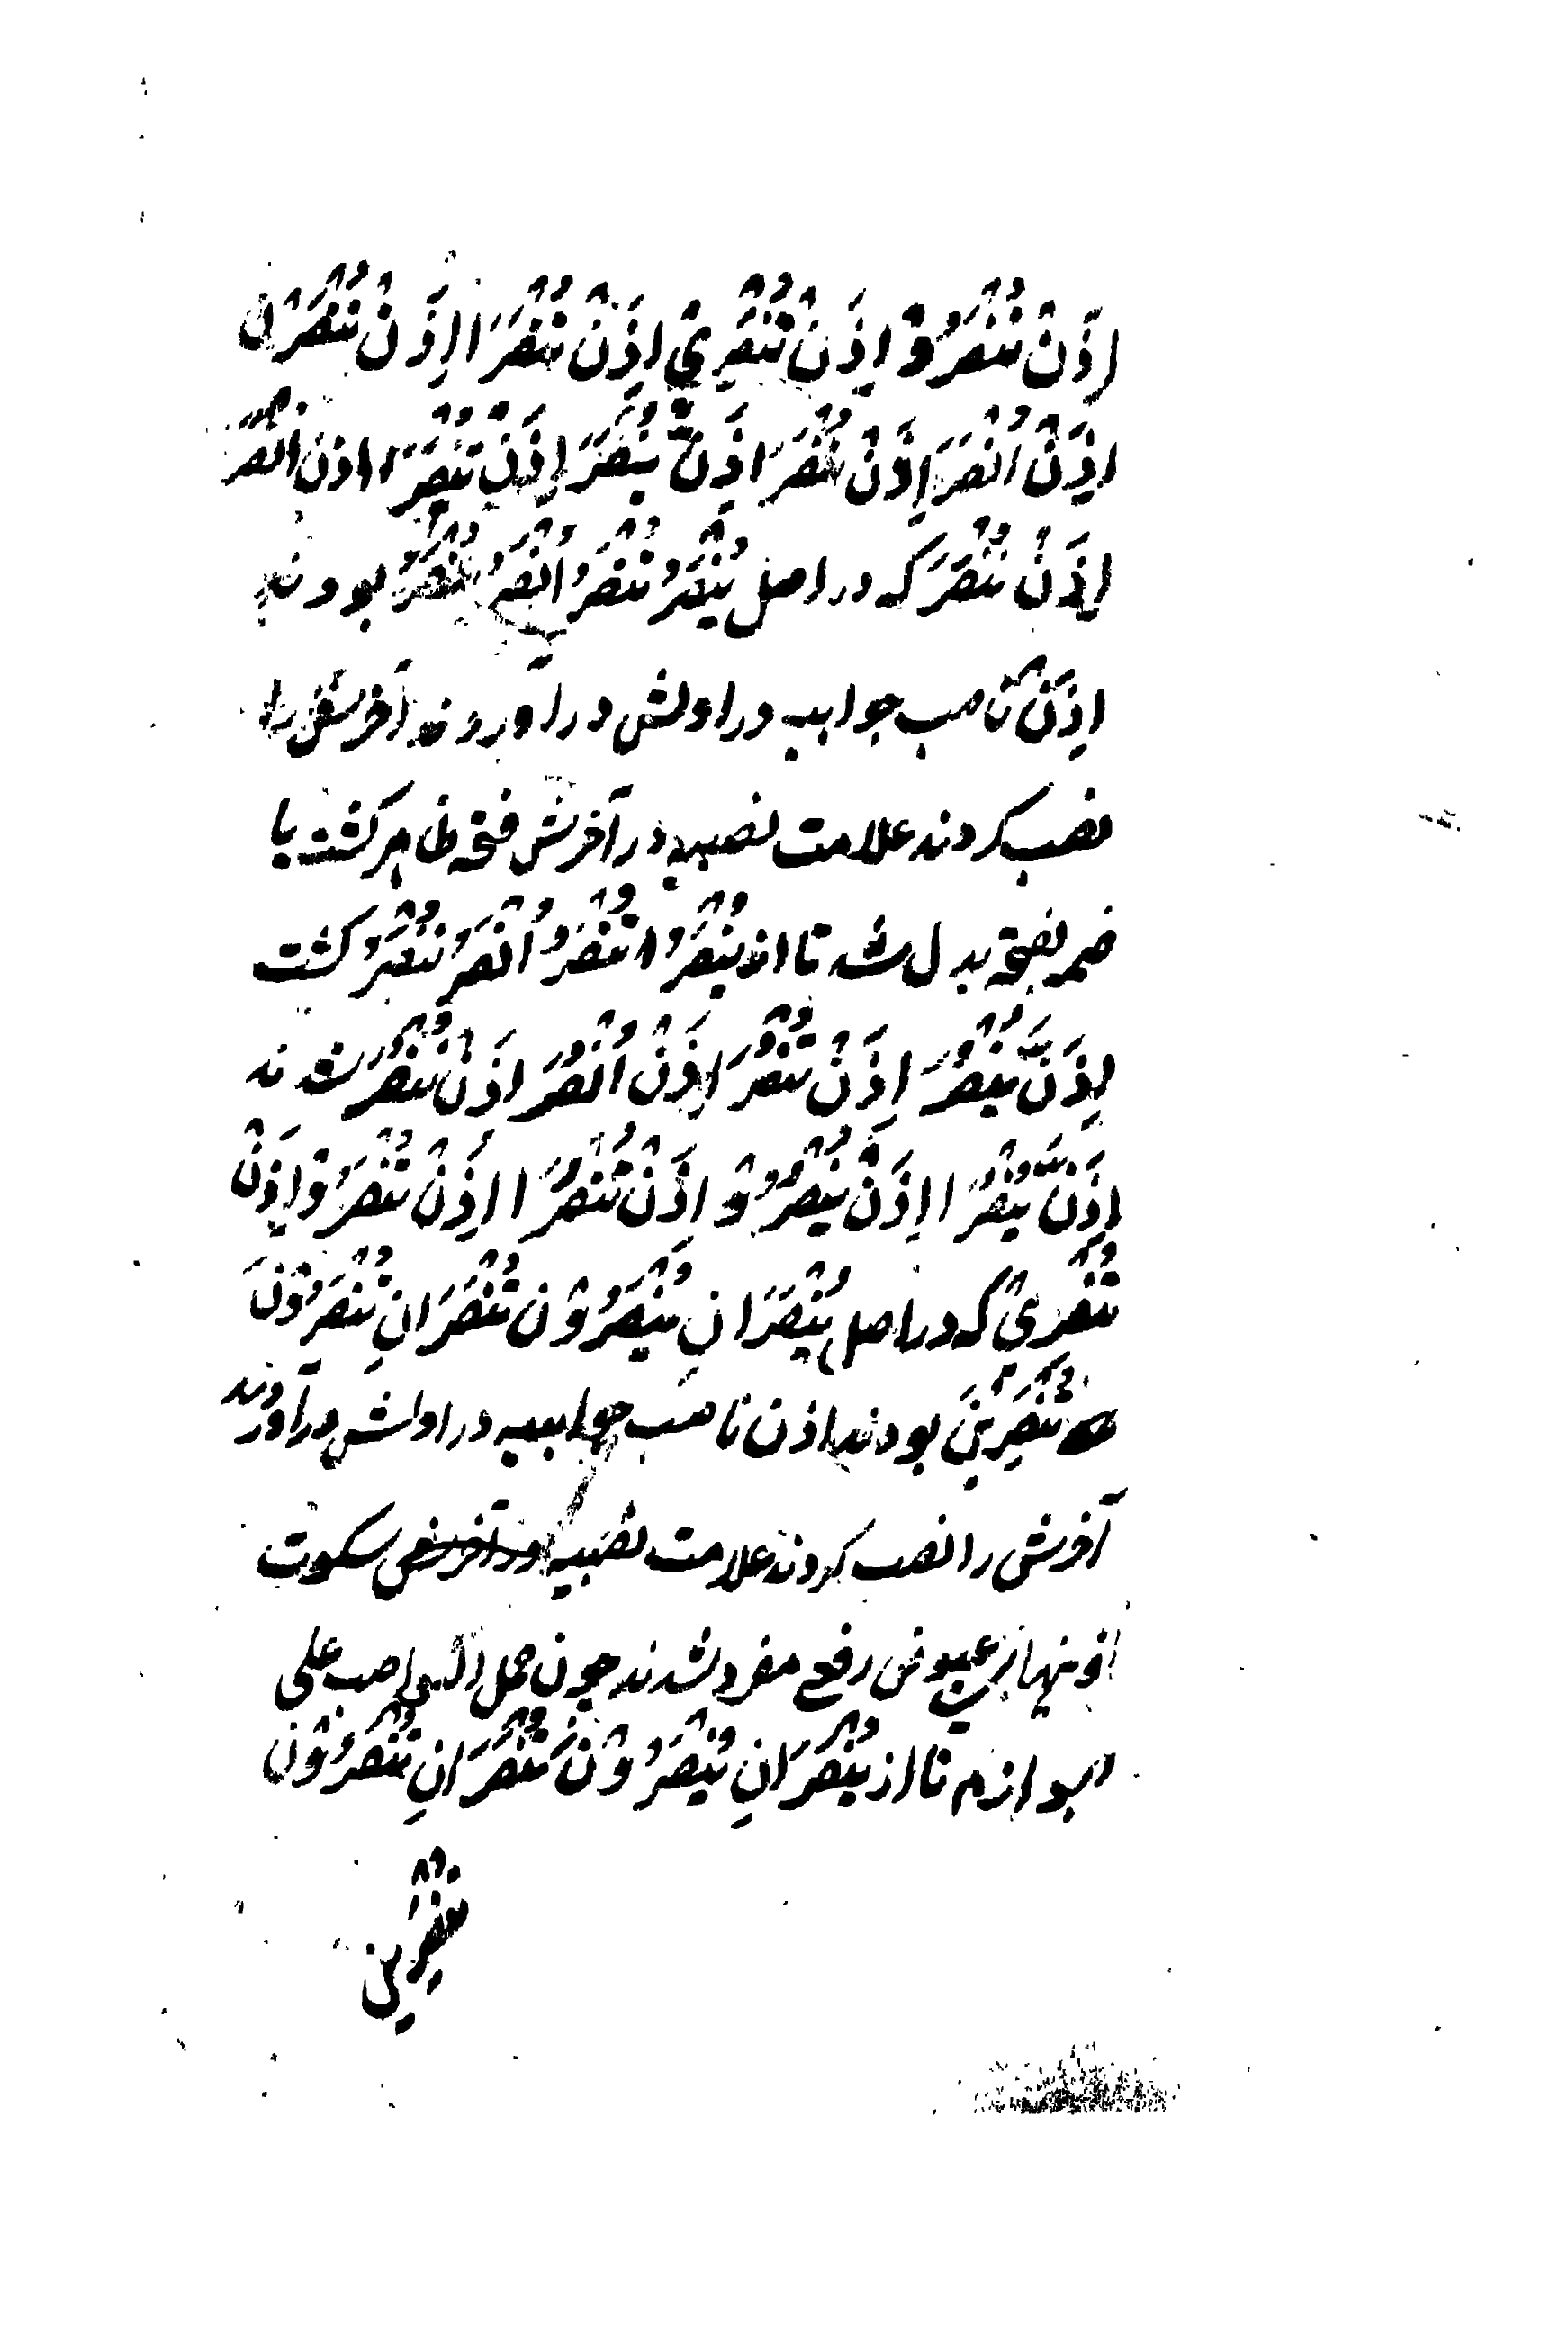 اِذَنْ تُنْصَرُوْ اِذَنْ تُنْصَرِيْ اِذَنْ تُنْصَرَا اِذَنْ تُنْصَرْنَ
اِذَنْ اُنْصَرَ اِذَنْ نُنْصَرَ اِذَنْ يُنْصَرَ اِذَنْ تُنْصَرَ اذن انصر
اِذَنْ نُنْصَرَ که در اصل يُنْصَرُ تُنْصَرُ اُنْصَرُ نُنْصَرُ بودند
اِذَنْ ناصب جوابیه در اولش درآوردند آخرش را
نصب کردند علامت نصبیه در آخرش فتحه ظاهر کشت یا
ضمه بفتحه بدل شد تا از يُنْصَرُ تُنْصَرُ اُنْصَرُ نُنْصَرُ کشت
اِذَنْ يُنْصَرَ اِذَنْ تُنْصَرَ اِذَنْ اُنْصَرَ اِذَنْ نُنْصَرَ شدند
اِذَنْ يُنْصَرَا اِذَنْ يُنْصَرُوْ اِذَنْ تُنْصَرَا اِذَنْ تُنْصَرُوْ اِذَنْ
تُنْصَرِيْ که در اصل يُنْصَرَانِ يُنْصَرُوْنَ تُنْصَرَانِ تُنْصَرُوْنَ
تُنْصَرِيْنَ بودند اذن ناصب جوابیه در اولش درآوردند
آخرش را نصب کردند علامت نصبیه در آخرش سکوت
نونهای عیوض رفع مفرد شدند چون حمل الناصب علی
الجوازم تا از يُنْصَرَانِ يُنْصَرُوْنَ تُنْصَرَانِ تُنْصَرُوْنَ
تُنْصَرِيْنَ